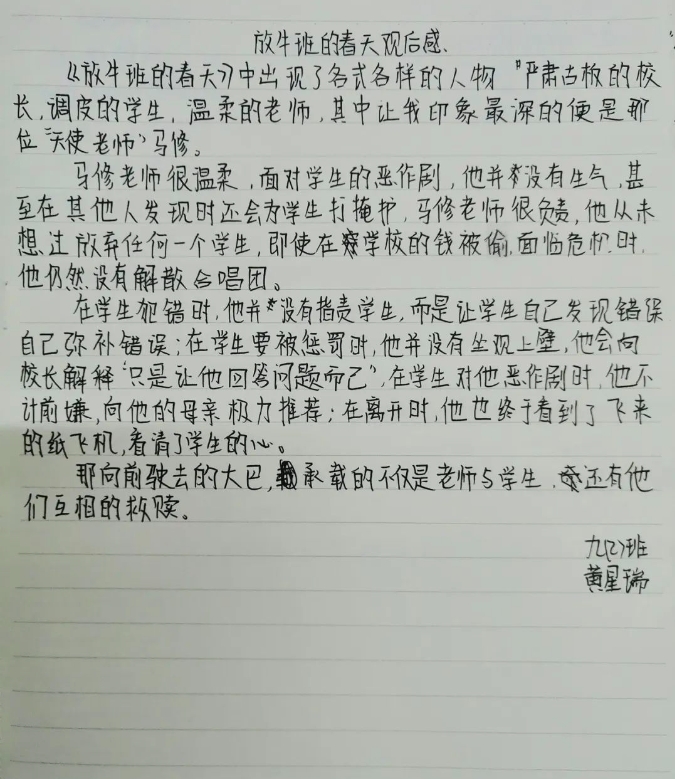 放牛班的春天观后感、
《放牛班的春天》中出现了各式各样的人物“严肃古板的校
长,调皮的学生,温柔的老师,其中让我印象最深的便是那
位“天使老师”马修。
马修老师很温柔,面对学生的恶作剧,他并没有生气,甚
至在其他人发现时还会为学生打掩护,马修老师很负责,他从未
想过放弃任何一个学生,即使在学校的钱被偷,面临危机时,
他仍然没有解散合唱团。
在学生犯错时,他并没有指责学生,而是让学生自己发现错误
自己弥补错误;在学生要被惩罚时,他并没有坐观上壁,他会向
校长解释“只是让他回答问题而已”,在学生对他恶作剧时,他不
计前嫌,向他的母亲极力推荐;在离开时,他也终于看到了飞来
的纸飞机,看清了学生的心。
那向前驶去的大巴,承载的不仅是老师与学生,还有他
们互相的救赎。
九(2)班
黄星瑞